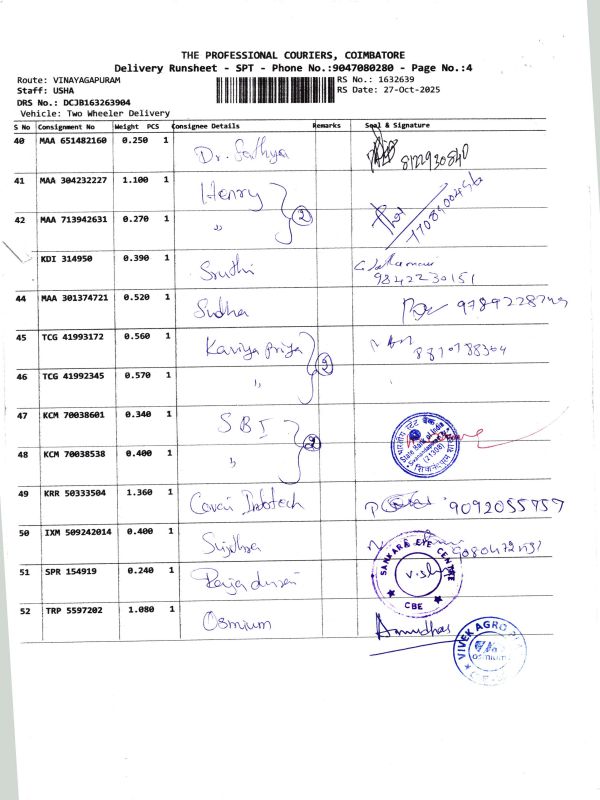 THE PROFESSIONAL COURIERS, COIMBATORE
Delivery Runsheet - SPT - Phone No.:9047080280 - Page No.:4
Route: VINAYAGAPURAM RS No.: 1632639
Staff: USHA RS Date: 27-Oct-2025
DRS No.: DCJB163263904
Vehicle: Two Wheeler Delivery
S No Consignment No Weight PCS Consignee Details Remarks Seal & Signature
40 MAA 651482160 0.250 1 Dr. Sathya 8122930840
41 MAA 304232227 1.100 1 Henry 2
42 MAA 713942631 0.270 1 "
KDI 314950 0.390 1 Sruthi 9842230151
44 MAA 301374721 0.520 1 Sudha
45 TCG 41993172 0.560 1 Kaviya priya 2
46 TCG 41992345 0.570 1 "
47 KCM 70038601 0.340 1 SBI 2
State Bank of India
(21308)
48 KCM 70038538 0.400 1 "
49 KRR 50333504 1.360 1 Covai Infotech 9092055757
50 IXM 509242014 0.400 1
51 SPR 154919 0.240 1 Rajadurai SANKARA EYE CENTRE CBE
52 TRP 5597202 1.080 1 Osmium
VIVEK AGRO